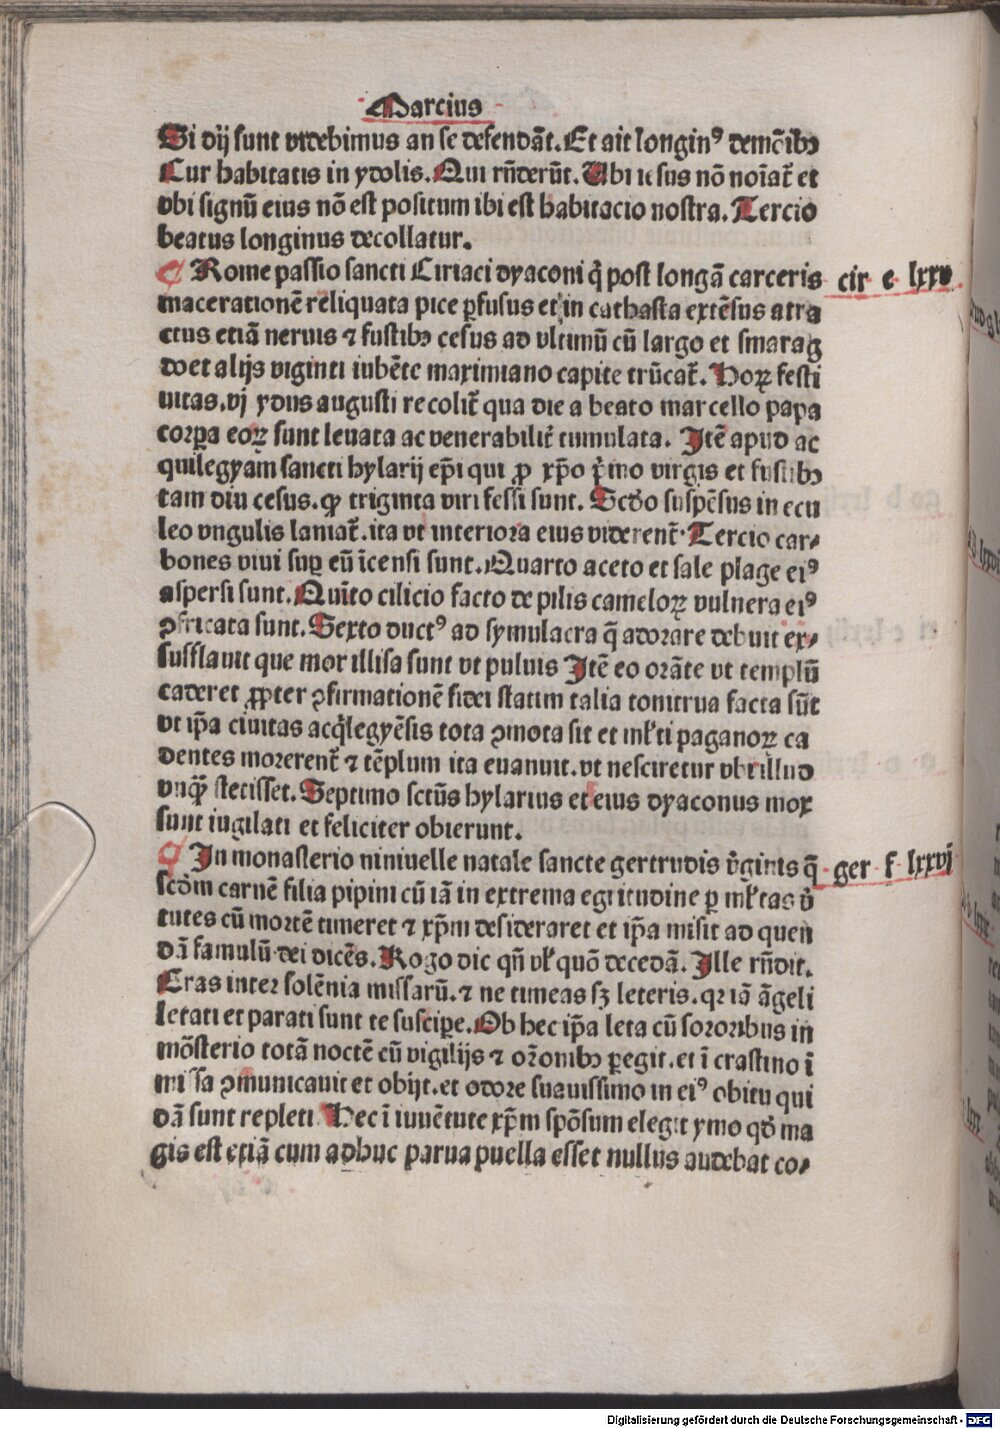 Marcius
Si dij sunt videbimus an se defendāt. Et ait longinꝰ demōibꝫ
Cur habitatis in ydolis. Qui rn̄derūt. Ubi iesus nō noīat̄ et
vbi signū eius nō est positum ibi est habitacio nostra. Tercio
beatus longinus decollatur.
¶ Rome passio sancti Ciriaci dyaconi q̇ post longā carceris cir e lxxv
macerationē reliquata pice ꝑfusus et in cathasta extēsus atra
ctus etiā neruis ⁊ fustibꝫ cesus ad vltimū cū largo et smarag
do et alijs viginti iubēte maximiano capite trūcat̄. Hoꝝ festi
uitas. vj ydus augusti recolit̄ qua die a beato marcello papa
corpa eoꝝ sunt leuata ac venerabilit̄ tumulata. Itē apud ac
quilegyam sancti hylarij ep̄i qui ꝓ xp̄o p̄mo virgis et fustibꝫ
tam diu cesus. ꝙ triginta viri fessi sunt. Scd̄o suspēsus in ecu
leo vngulis laniat̄. ita vt interiora eius viderent̄. Tercio car⸗
bones viui suꝑ eū īcensi sunt. Quarto aceto et sale plage eiꝰ
aspersi sunt. Quīto cilicio facto de pilis cameloꝝ vulnera eiꝰ
ꝯfricata sunt. Sexto ductꝰ ad symulacra q̄ adorare debuit ex⸗
sufflauit que mor illisa sunt vt puluis Itē eo orāte vt templū
caderet ꝓpter ꝯfirmationē fidei statim talia tonitrua facta sūt
vt ip̄a ciuitas acq̇legyēsis tota ꝯmota sit et ml̄ti paganoꝝ ca
dentes morerent̄ ⁊ tēplum ita euanuit. vt nesciretur vbi illud
vnqꝫ̄ stetisset. Septimo sctūs hylarius et eius dyaconus mox
sunt iugilati et feliciter obierunt.
¶ In monasterio niniuelle natale sancte gertrudis v̄ginis q̄ ger f lxxvj
scd̄m carnē filia pipini cū iā in extrema egritudine ꝑ ml̄tas v̄
tutes cū mortē timeret ⁊ xp̄m desideraret et ip̄a misit ad quen
dā famulū dei dicēs. Rogo dic qn̄ vl̄ quō decedā. Ille rn̄dit.
Cras inter solēnia missarū. ⁊ ne timeas sꝫ leteris. qꝛ iā āgeli
letati et parati sunt te suscipe. Ob hec ip̄a leta cū sororibus in
mōsterio totā noctē cū vigilijs ⁊ or̄onibꝫ ꝑegit. et ī crastino ī
missa ꝯmunicauit et obijt. et odore suauissimo in eiꝰ obitu qui
dā sunt repleti Hec ī iuuētute xp̄m spōsum elegit ymo qd̄ ma
gis est etiā cum adhuc parua puella esset nullus audebat co⸗
Digitalisierung gefördert durch die Deutsche Forschungsgemeinschaft - DFG